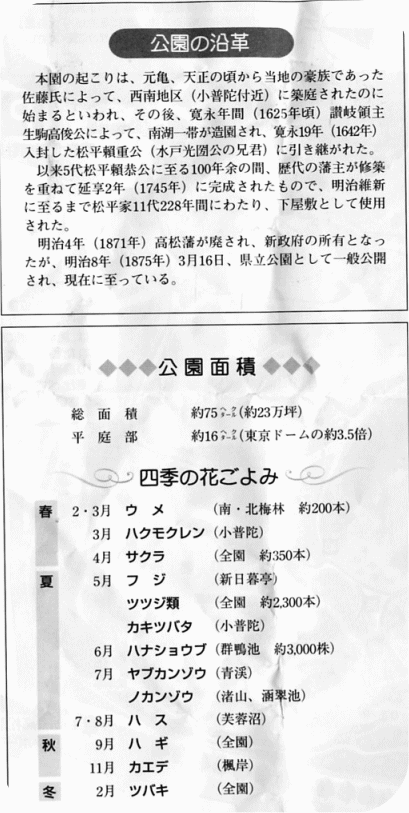 公園の沿革
本園の起こりは、元亀、天正の頃から当地の豪族であった
佐藤氏によって、西南地区（小普陀付近）に築庭されたのに
始まるといわれ、その後、寛永年間（1625年頃）讃岐領主
生駒高俊公によって、南湖一帯が造園され、寛永19年（1642年）
入封した松平頼重公（水戸光圀公の兄君）に引き継がれた。
以来5代松平頼恭公に至る100年余の間、歴代の藩主が修築
を重ねて延享2年（1745年）に完成されたもので、明治維新
に至るまで松平家11代228年間にわたり、下屋敷として使用
された。
明治4年（1871年）高松藩が廃され、新政府の所有となっ
たが、明治8年（1875年）3月16日、県立公園として一般公開
され、現在に至っている。
◆◆◆公園面積◆◆◆
総面積 約75ヘクタール（約23万坪）
平庭部 約16ヘクタール（東京ドームの約3.5倍）
四季の花ごよみ
春 2・3月 ウメ （南・北梅林 約200本）
3月 ハクモクレン（小普陀）
4月 サクラ （全園 約350本）
夏 5月 フジ （新日暮亭）
ツツジ類 （全園 約2,300本）
カキツバタ （小普陀）
6月 ハナショウブ（群鴨池 約3,000株）
7月 ヤブカンゾウ（青渓）
ノカンゾウ （渚山、涵翠池）
7・8月 ハス （芙蓉沼）
秋 9月 ハギ （全園）
11月 カエデ （楓岸）
冬 2月 ツバキ （全園）